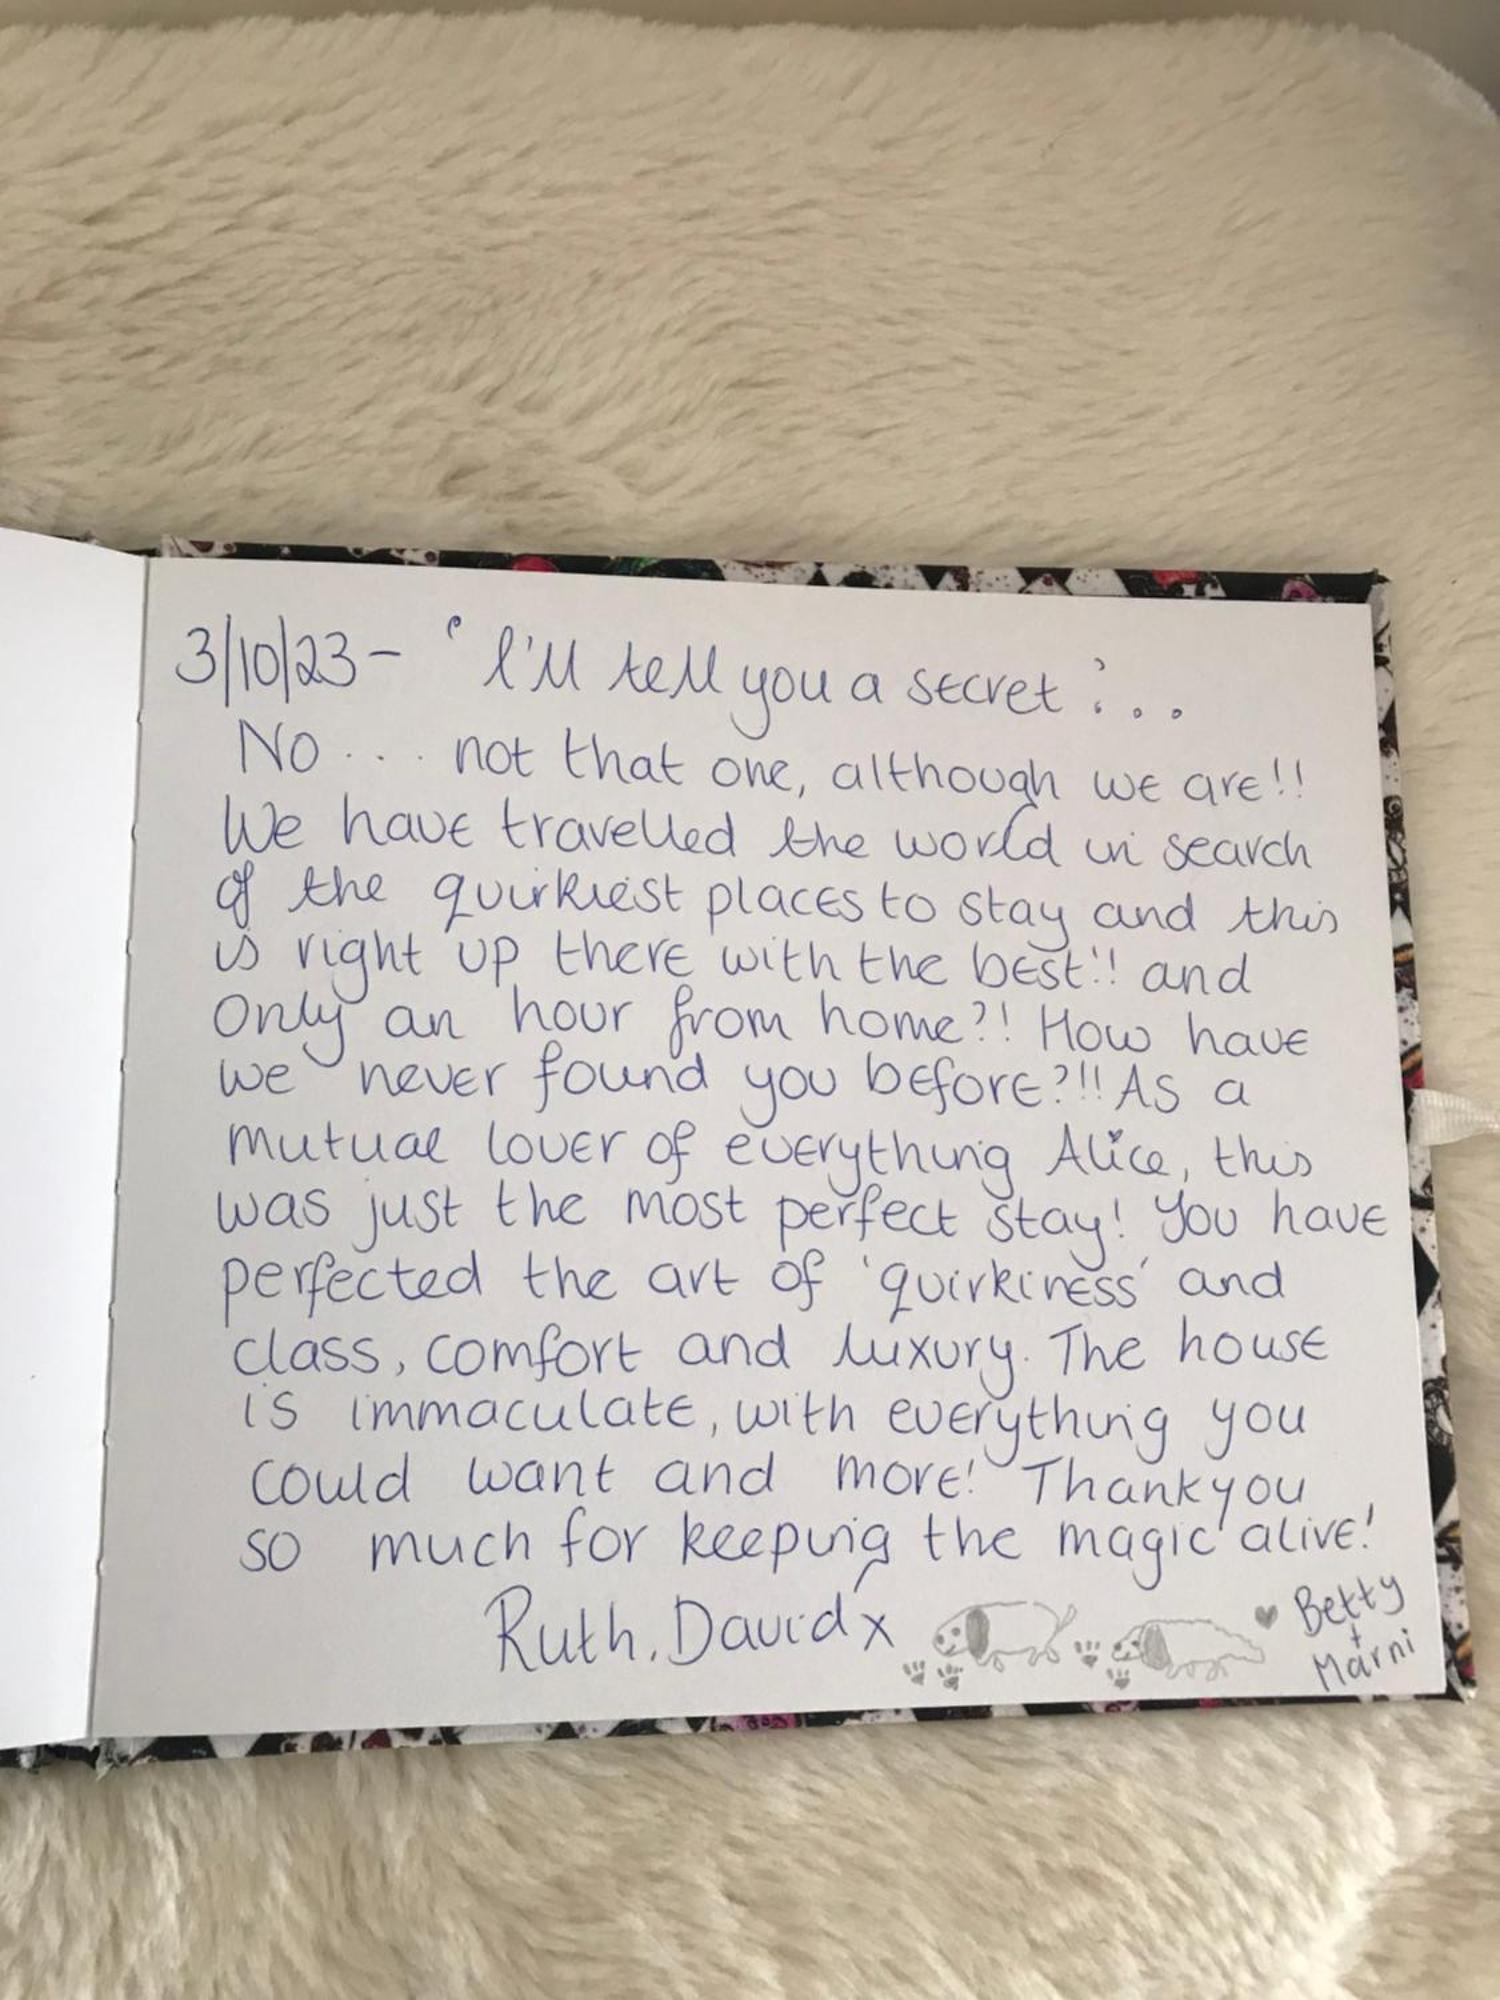 3/10/23 - 'I'll tell you a secret'...
No... not that one, although we are!!
We have travelled the world in search
of the quirkiest places to stay and this
is right up there with the best!! and
only an hour from home?! How have
we never found you before?!! As a
mutual lover of everything Alice, this
was just the most perfect stay! You have
perfected the art of 'quirkiness' and
class, comfort and luxury. The house
is immaculate, with everything you
could want and more! Thankyou
so much for keeping the magic alive!
Ruth, David x
Betty
+
Marni